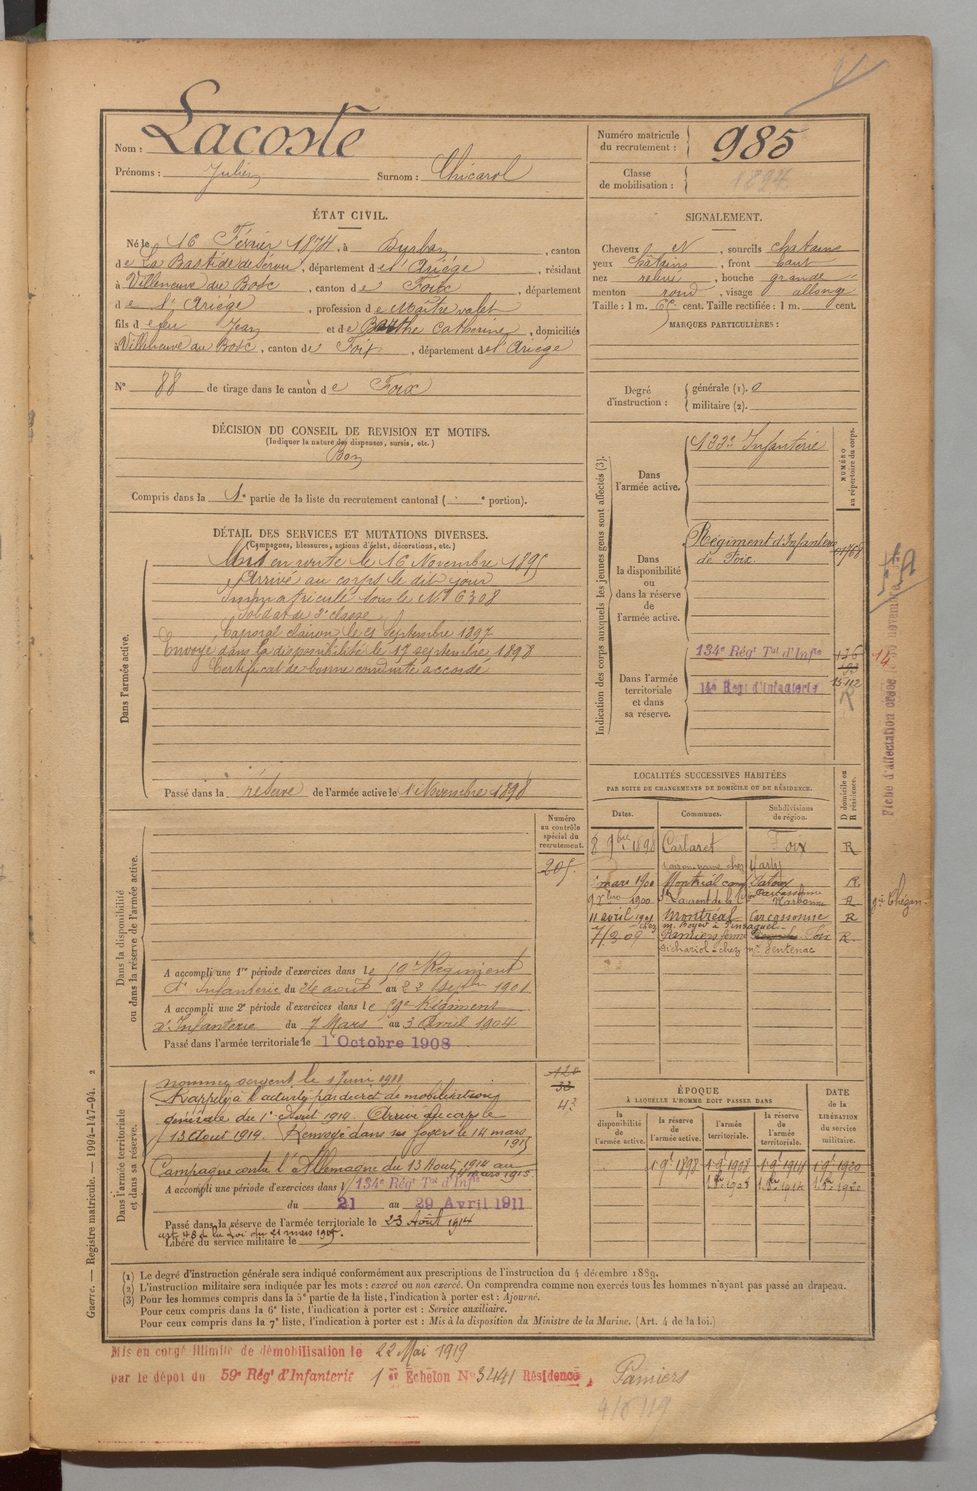 Nom : Lacoste
Prénoms : Julien Surnom : Chicarol
ÉTAT CIVIL.
Né le 16 Février 1874, à Durban, canton
de La Bastide de Sérou, département de l'Ariège, résidant
à Villeneuve du Bosc, canton de Foix, département
de l'Ariège, profession de Maître valet
fils de feu Jean et de Barthe Catherine, domiciliés
à Villeneuve du Bosc, canton de Foix, département de l'Ariège
N° 88 de tirage dans le canton de Foix
DÉCISION DU CONSEIL DE REVISION ET MOTIFS.
(Indiquer la nature des dispenses, sursis, etc.)
Bon
Compris dans la 1e partie de la liste du recrutement cantonal ( e portion).
DÉTAIL DES SERVICES ET MUTATIONS DIVERSES.
(Campagnes, blessures, actions d'éclat, décorations, etc.)
Dans l'armée active.
Mis en route le 16 Novembre 1895
Arrivé au corps le dit jour
Immatriculé sous le N° 6308
Soldat de 2e classe
Caporal clairon le 21 Septembre 1897
Envoyé dans la disponibilité le 17 septembre 1898
Certificat de bonne conduite accordé
Passé dans la réserve de l'armée active le 1 Novembre 1898
Numéro
au contrôle
spécial du
recrutement.
205
Dans la disponibilité
ou dans la réserve de l'armée active.
A accompli une 1re période d'exercices dans le 59e Régiment
d'Infanterie du 26 août au 22 Septbre 1901
A accompli une 2e période d'exercices dans le 59e Régiment
d'Infanterie du 7 Mars au 3 Avril 1904
Passé dans l'armée territoriale le 1 Octobre 1908
Dans l'armée territoriale
et dans sa réserve.
nommé sergent le 1 Juin 1911
Rappelé à l'activité par décret de mobilisation
générale du 1er Août 1914. Arrivé au corps le
13 Août 1914. Renvoyé dans ses foyers le 14 mars
1915
Campagne contre l'Allemagne du 13 Août 1914 au
mars 1915
A accompli une période d'exercices dans l 134e Rég Tal d'Infie
du 21 au 29 Avril 1911
Passé dans la réserve de l'armée territoriale le 23 Août 1914
art. 48 de la Loi du 21 mars 1905.
Libéré du service militaire le
128
33
43
Numéro matricule
du recrutement : 985
Classe
de mobilisation : 1894
SIGNALEMENT.
Cheveux N, sourcils chatains
yeux chatains, front haut
nez relevé, bouche grande
menton rond, visage allongé
Taille : 1 m. 65 cent. Taille rectifiée : 1 m. cent.
MARQUES PARTICULIÈRES :
Degré
d'instruction :
générale (1). 0
militaire (2).
Indication des corps auxquels les jeunes gens sont affectés (3).
NUMÉRO
au répertoire du corps.
Dans
l'armée active.
122e Infanterie
Dans
la disponibilité
ou
dans la réserve
de
l'armée active.
Régiment d'Infanterie
de Foix.
01768
Dans l'armée
territoriale
et dans
sa réserve.
134e Rég Tal d'Infie
14e Regt d'Infanterie
15112
R
14
Fiche d'affectation
LOCALITÉS SUCCESSIVES HABITÉES
PAR SUITE DE CHANGEMENTS DE DOMICILE OU DE RÉSIDENCE.
Dates. Communes. Subdivisions
de région. D domicile ou
R résidence.
8 9bre 1898 Carlaret Foix R
mars 1900 Montréal R
9bre 1900 St Laurent de la C Narbonne R
11 avril 1901 Montréal Carcassonne R
7/3 09 Pamiers ferme Foix R
ÉPOQUE
À LAQUELLE L'HOMME DOIT PASSER DANS
la
disponibilité
de
l'armée active.
la réserve
de
l'armée active.
l'armée
territoriale.
la réserve
de
l'armée
territoriale.
DATE
de la
LIBÉRATION
du service
militaire.
1 9bre 1897 1 9bre 1907 1 9bre 1914 1 9bre 1920
1 8bre 1908 1 8bre 1914 1 8bre 1920
(1) Le degré d'instruction générale sera indiqué conformément aux prescriptions de l'instruction du 4 décembre 1889.
(2) L'instruction militaire sera indiquée par les mots : exercé ou non exercé. On comprendra comme non exercés tous les hommes n'ayant pas passé au drapeau.
(3) Pour les hommes compris dans la 5e partie de la liste, l'indication à porter est : Ajourné.
Pour ceux compris dans la 6e liste, l'indication à porter est : Service auxiliaire.
Pour ceux compris dans la 7e liste, l'indication à porter est : Mis à la disposition du Ministre de la Marine. (Art. 4 de la loi.)
Guerre. — Registre matricule. — 1994-147-94. 2
Mis en congé illimité de démobilisation le 22 Mai 1919
par le dépôt du 59e Régt d'Infanterie 1er Échelon N° 32441 Résidence, Pamiers